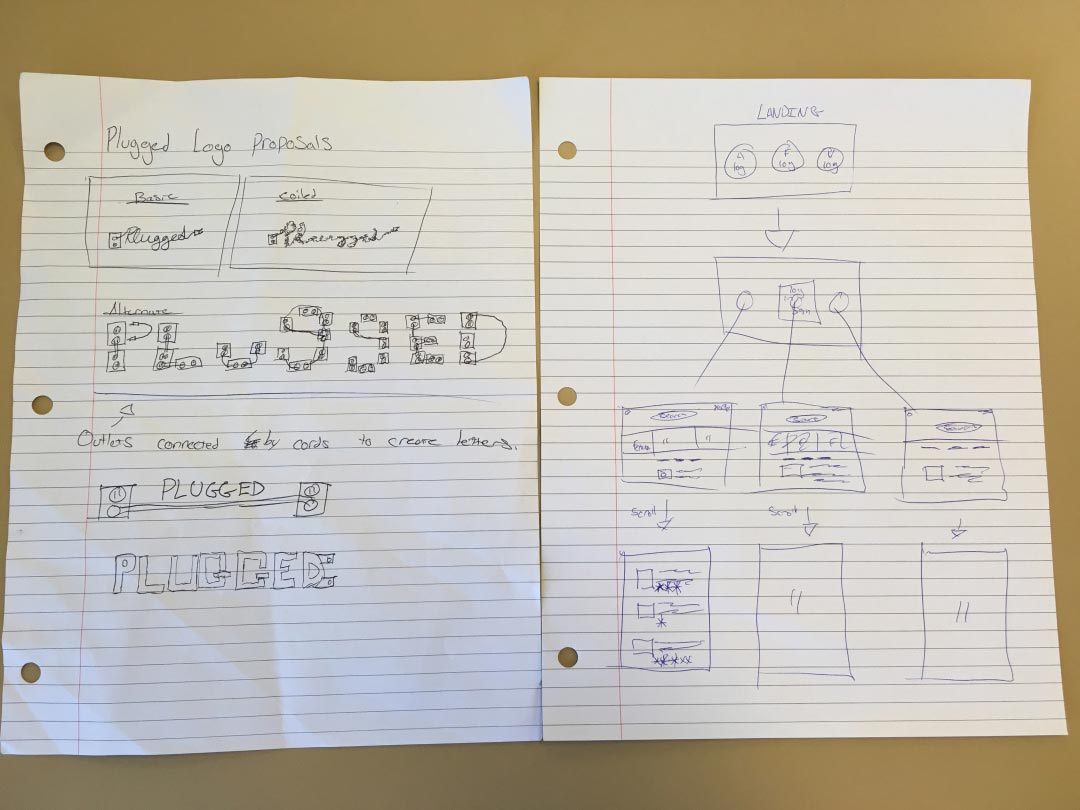 Plugged Logo Proposals
Basic
Coiled
Plugged
Plugged
Alternate
PLUGGED
Outlets connected by cords to create letters.
PLUGGED
PLUGGED
LANDING
log
log
log
log
Search
Search
Search
Scroll
Scroll